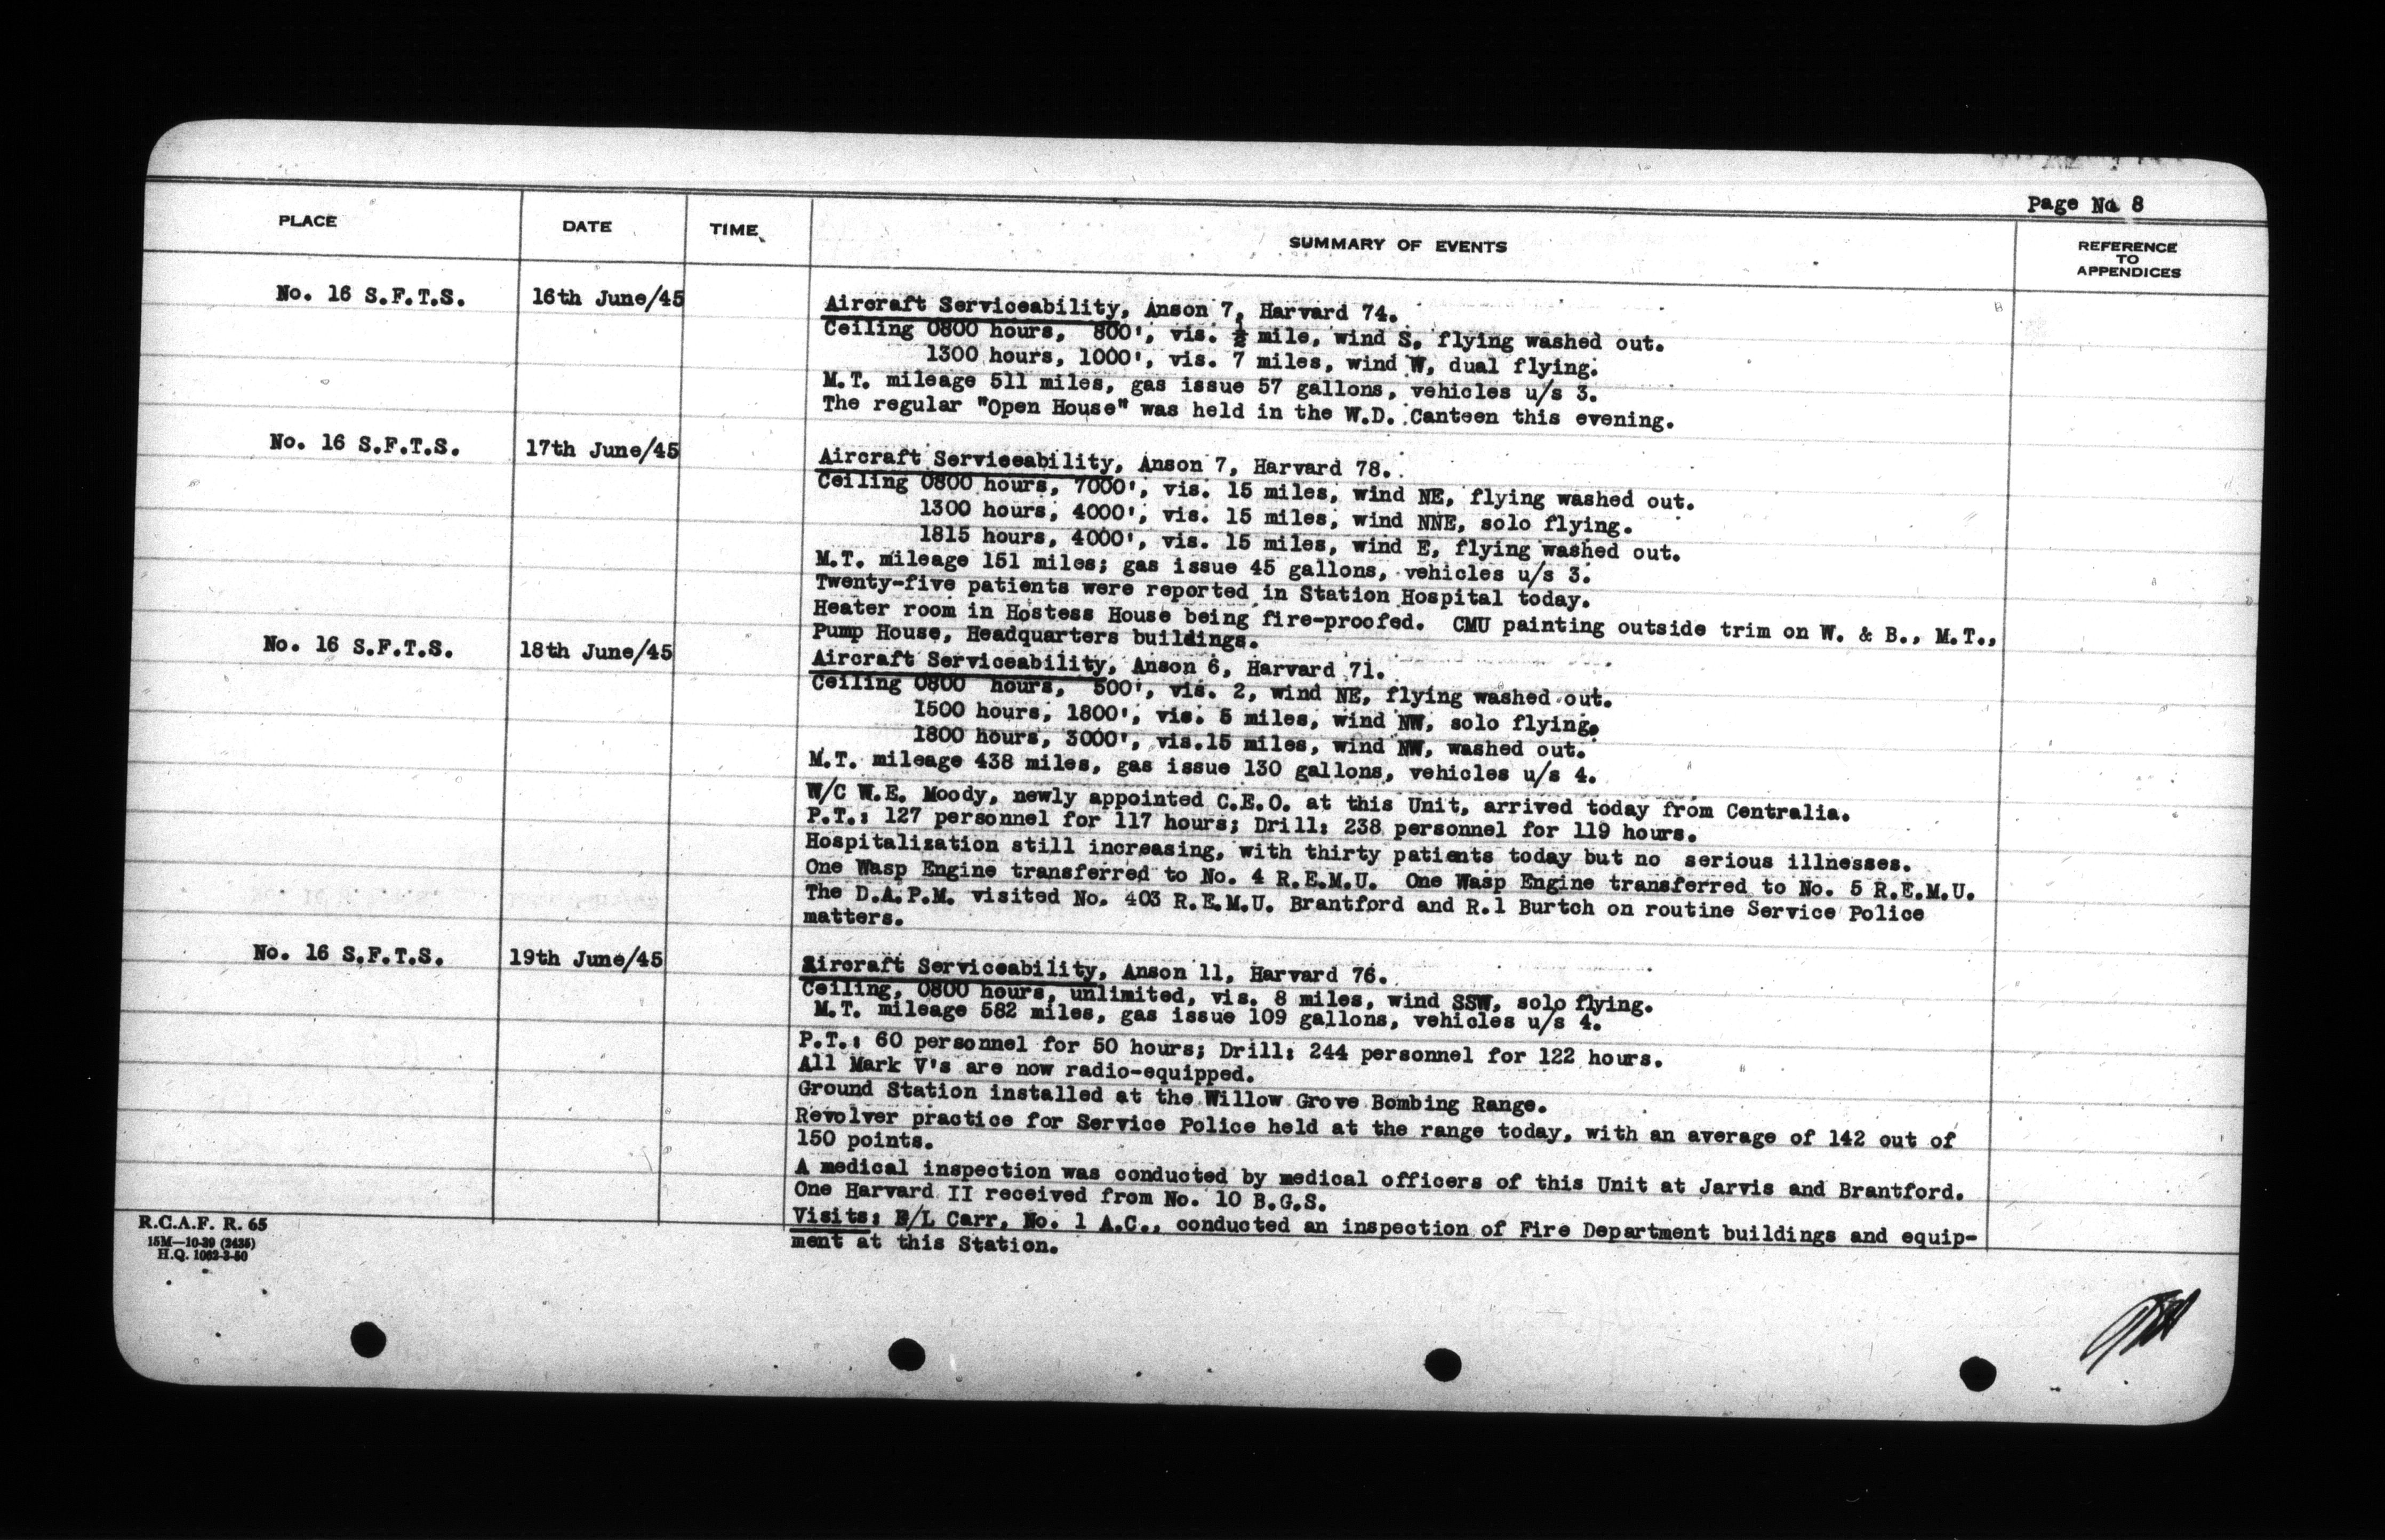 Page No 8
PLACE DATE TIME SUMMARY OF EVENTS REFERENCE TO APPENDICES
No. 16 S.F.T.S. 16th June/45 Aircraft Serviceability, Anson 7, Harvard 74.
Ceiling 0800 hours, 800', vis. ½ mile, wind S, flying washed out.
1300 hours, 1000', vis. 7 miles, wind W, dual flying.
M.T. mileage 511 miles, gas issue 57 gallons, vehicles u/s 3.
The regular "Open House" was held in the W.D. Canteen this evening.
No. 16 S.F.T.S. 17th June/45 Aircraft Serviceability, Anson 7, Harvard 78.
Ceiling 0800 hours, 7000', vis. 15 miles, wind NE, flying washed out.
1300 hours, 4000', vis. 15 miles, wind NNE, solo flying.
1815 hours, 4000', vis. 15 miles, wind E, flying washed out.
M.T. mileage 151 miles; gas issue 45 gallons, vehicles u/s 3.
Twenty-five patients were reported in Station Hospital today.
Heater room in Hostess House being fire-proofed. CMU painting outside trim on W. & B., M.T.,
Pump House, Headquarters buildings.
No. 16 S.F.T.S. 18th June/45 Aircraft Serviceability, Anson 6, Harvard 71.
Ceiling 0800 hours, 500', vis. 2, wind NE, flying washed out.
1500 hours, 1800', vis. 5 miles, wind NW, solo flying.
1800 hours, 3000', vis.15 miles, wind NW, washed out.
M.T. mileage 438 miles, gas issue 130 gallons, vehicles u/s 4.
W/C W.E. Moody, newly appointed C.E.O. at this Unit, arrived today from Centralia.
P.T.: 127 personnel for 117 hours; Drill: 238 personnel for 119 hours.
Hospitalization still increasing, with thirty patients today but no serious illnesses.
One Wasp Engine transferred to No. 4 R.E.M.U. One Wasp Engine transferred to No. 5 R.E.M.U.
The D.A.P.M. visited No. 403 R.E.M.U. Brantford and R.1 Burtch on routine Service Police
matters.
No. 16 S.F.T.S. 19th June/45 Aircraft Serviceability, Anson 11, Harvard 76.
Ceiling, 0800 hours, unlimited, vis. 8 miles, wind SSW, solo flying.
M.T. mileage 582 miles, gas issue 109 gallons, vehicles u/s 4.
P.T.: 60 personnel for 50 hours; Drill: 244 personnel for 122 hours.
All Mark V's are now radio-equipped.
Ground Station installed at the Willow Grove Bombing Range.
Revolver practice for Service Police held at the range today, with an average of 142 out of
150 points.
A medical inspection was conducted by medical officers of this Unit at Jarvis and Brantford.
One Harvard II received from No. 10 B.G.S.
Visits: F/L Carr, No. 1 A.C., conducted an inspection of Fire Department buildings and equip-
ment at this Station.
R.C.A.F. R. 65
15M—10-39 (2435)
H.Q. 1062-3-50